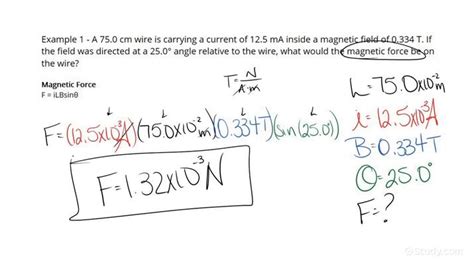 Example 1 - A 75.0 cm wire is carrying a current of 12.5 mA inside a magnetic field of 0.334 T. If
the field was directed at a 25.0° angle relative to the wire, what would the magnetic force be on
the wire?
Magnetic Force
F = iLBsinθ
T = N/A·m
F=(12.5x10⁻³A)(75.0x10⁻²m)(0.334T)(sin(25.0°)
F=1.32x10⁻³N
L=75.0x10⁻²m
i=12.5x10⁻³A
B=0.334T
θ=25.0°
F=?
Study.com